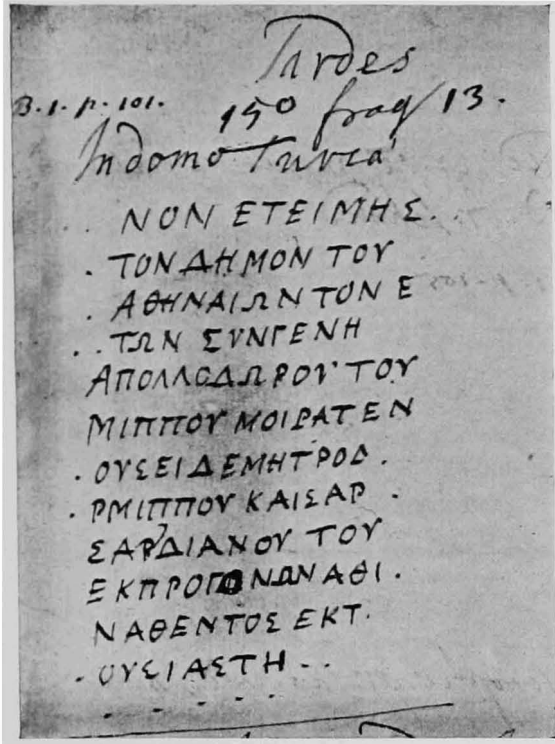 Sardes
B.1.p.101. 150 frag/13.
In domo Turca
. . ΝΟΝ ΕΤΕΙΜΗΣ . .
. ΤΟΝ ΔΗΜΟΝ ΤΟΥ
. ΑΘΗΝΑΙΩΝ ΤΟΝ Ε
. . ΤΩΝ ΣΥΝΓΕΝΗ
ΑΠΟΛΛΟΔΩΡΟΥ ΤΟΥ
ΜΙΠΠΟΥ ΜΟΙΡΑΤΕΝ
. ΟΥΣΕΙΔΕΜΗΤΡΟΔ .
. ΡΜΙΠΠΟΥ ΚΑΙΣΑΡ .
ΣΑΡΔΙΑΝΟΥ ΤΟΥ
ΕΚΠΡΟΓΟΝΩΝΑΘΙ .
ΝΑΘΕΝΤΟΣ ΕΚΤ .
. ΟΥΣΙΑΣΤΗ . .
. . . . .